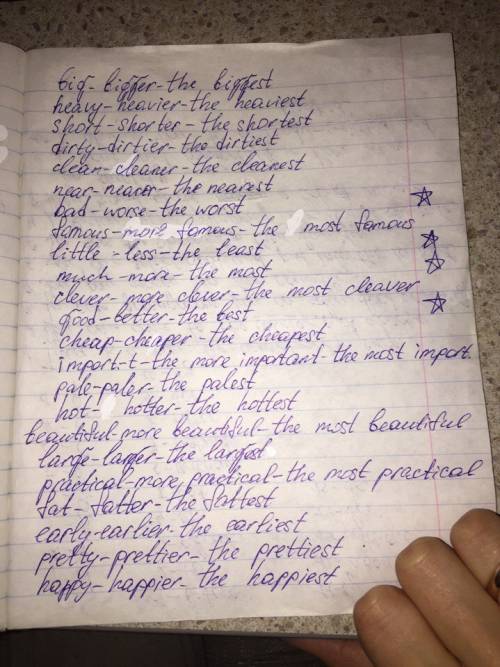 big-bigger-the biggest
heavy-heavier-the heaviest
short-shorter-the shortest
dirty-dirtier-the dirtiest
clean-cleaner-the cleanest
near-nearer-the nearest
bad-worse-the worst
famous-more famous-the most famous
little-less-the least
much-more-the most
clever-more clever-the most cleaver
good-better-the best
cheap-cheaper-the cheapest
import.t-the more important-the most import.
pale-paler-the palest
hot-hotter-the hottest
beautiful-more beautiful-the most beautiful
large-larger-the largest
practical-more practical-the most practical
fat-fatter-the fattest
early-earlier-the earliest
pretty-prettier-the prettiest
happy-happier-the happiest